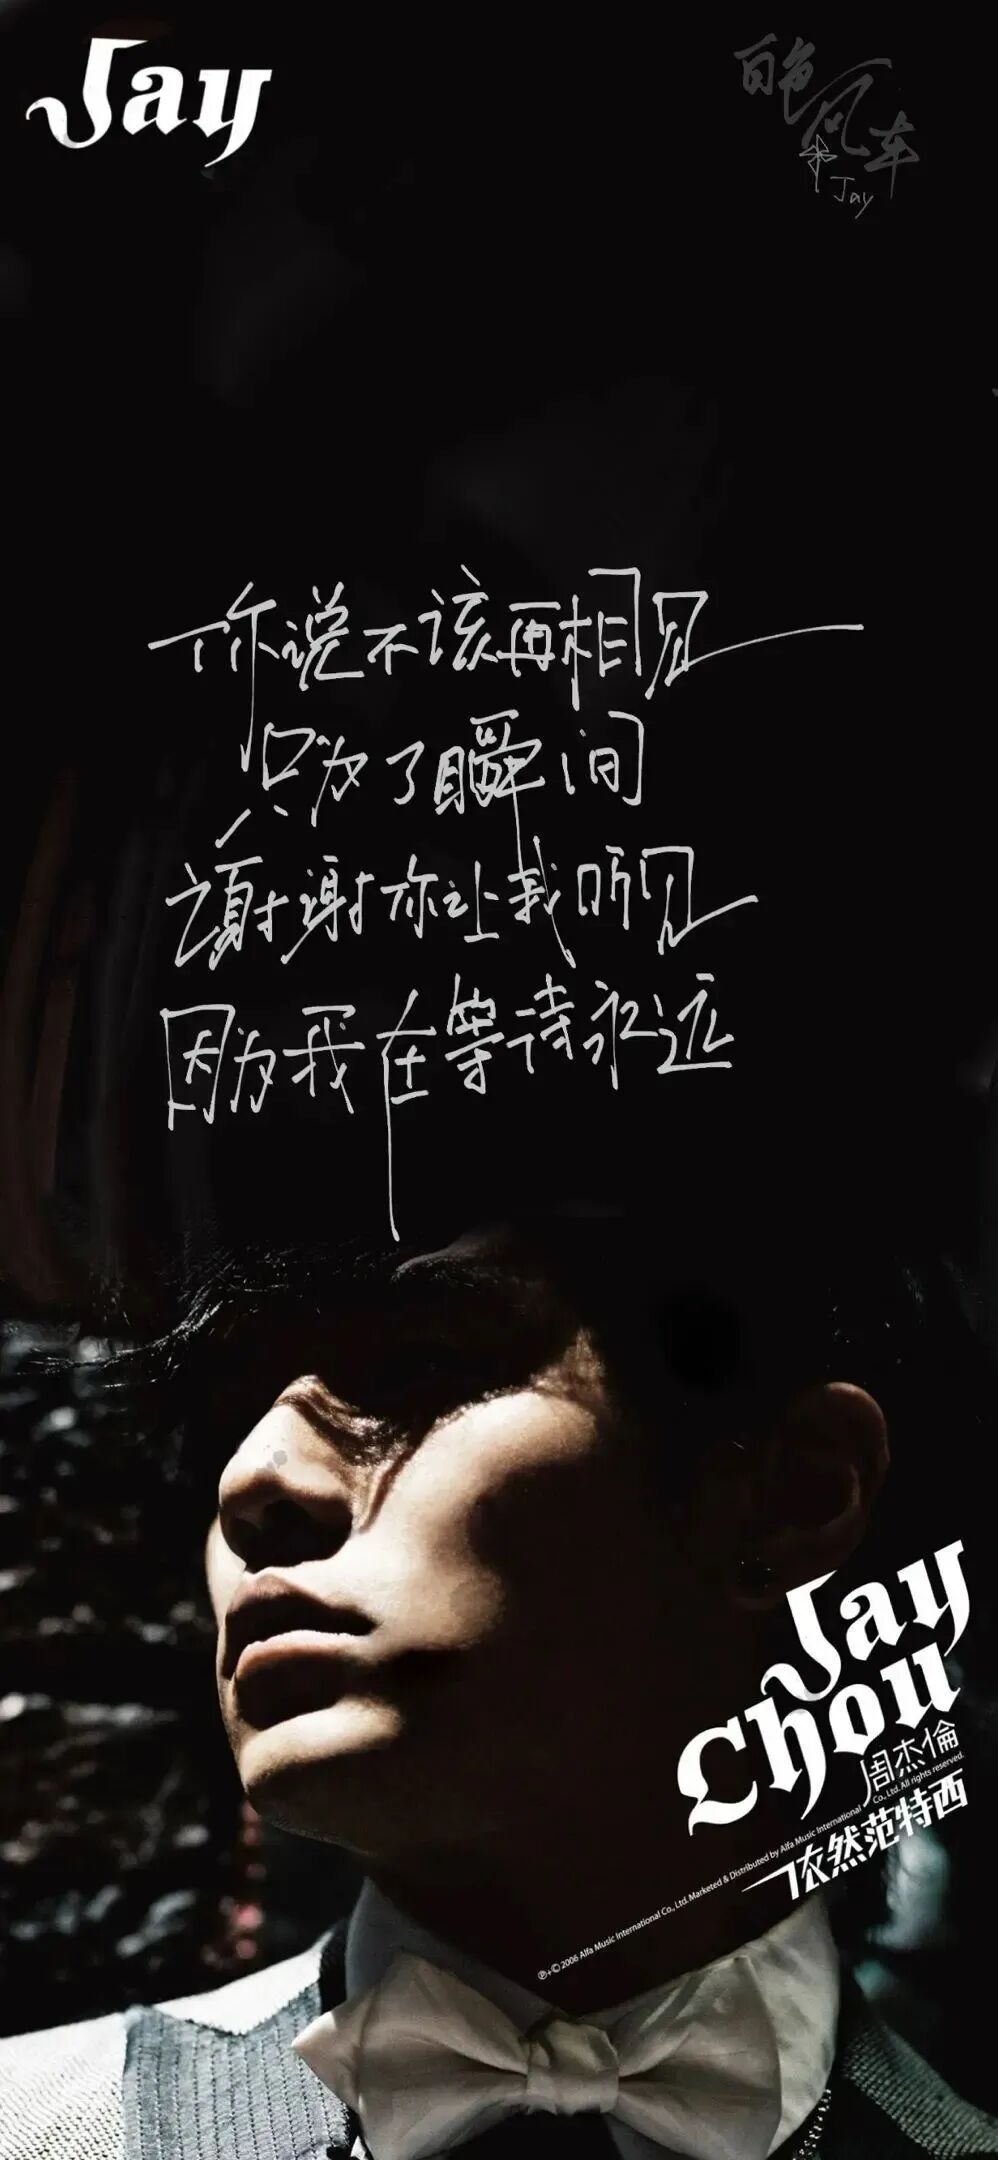 Jay
白色风车
Jay
你说不该再相见
只为了瞬间
谢谢你让我听见
因为我在等待永远
Jay
Chou
周杰倫
依然范特西
℗+© 2006 Alfa Music International Co., Ltd. Marketed & Distributed by Alfa Music International Co., Ltd. All rights reserved.